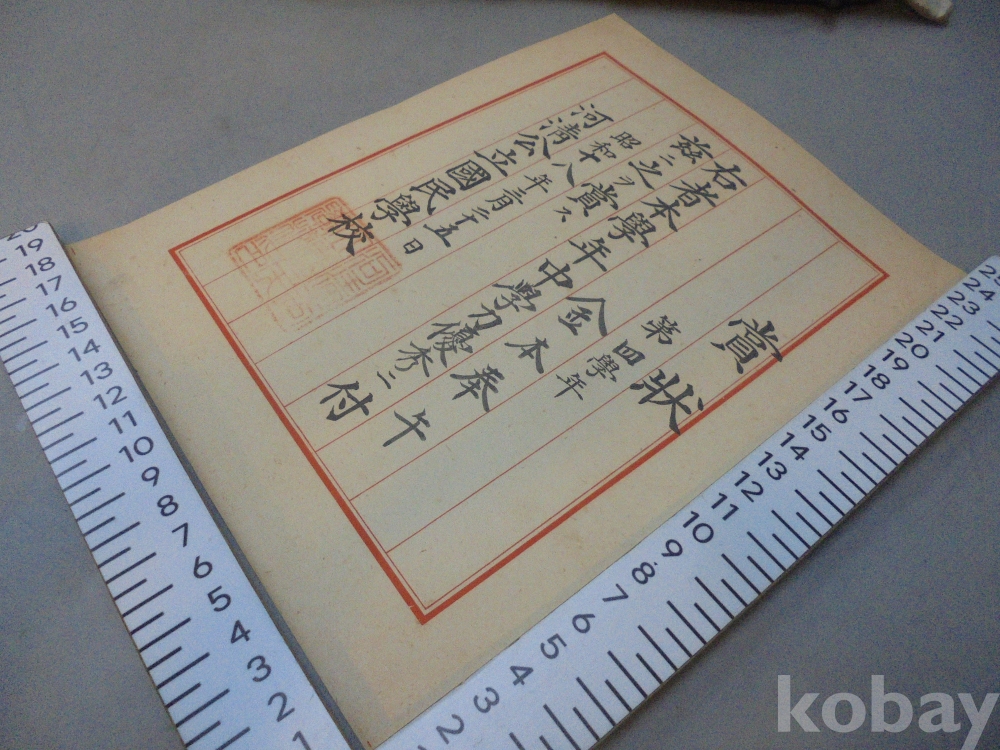 賞狀
第四學年
金本奉午
右者本學年中學力優秀ニ付
茲ニ之ヲ賞ス
昭和十八年三月二十五日
河清公立國民學校
20 19 18 17 16 15 14 13 12 11 10 9 8 7 6 5 4 3 2 1
2 3 4 5 6 7 8 9 10 11 12 13 14 15 16 17 18 19 20 21 22 23 24 25
kobay